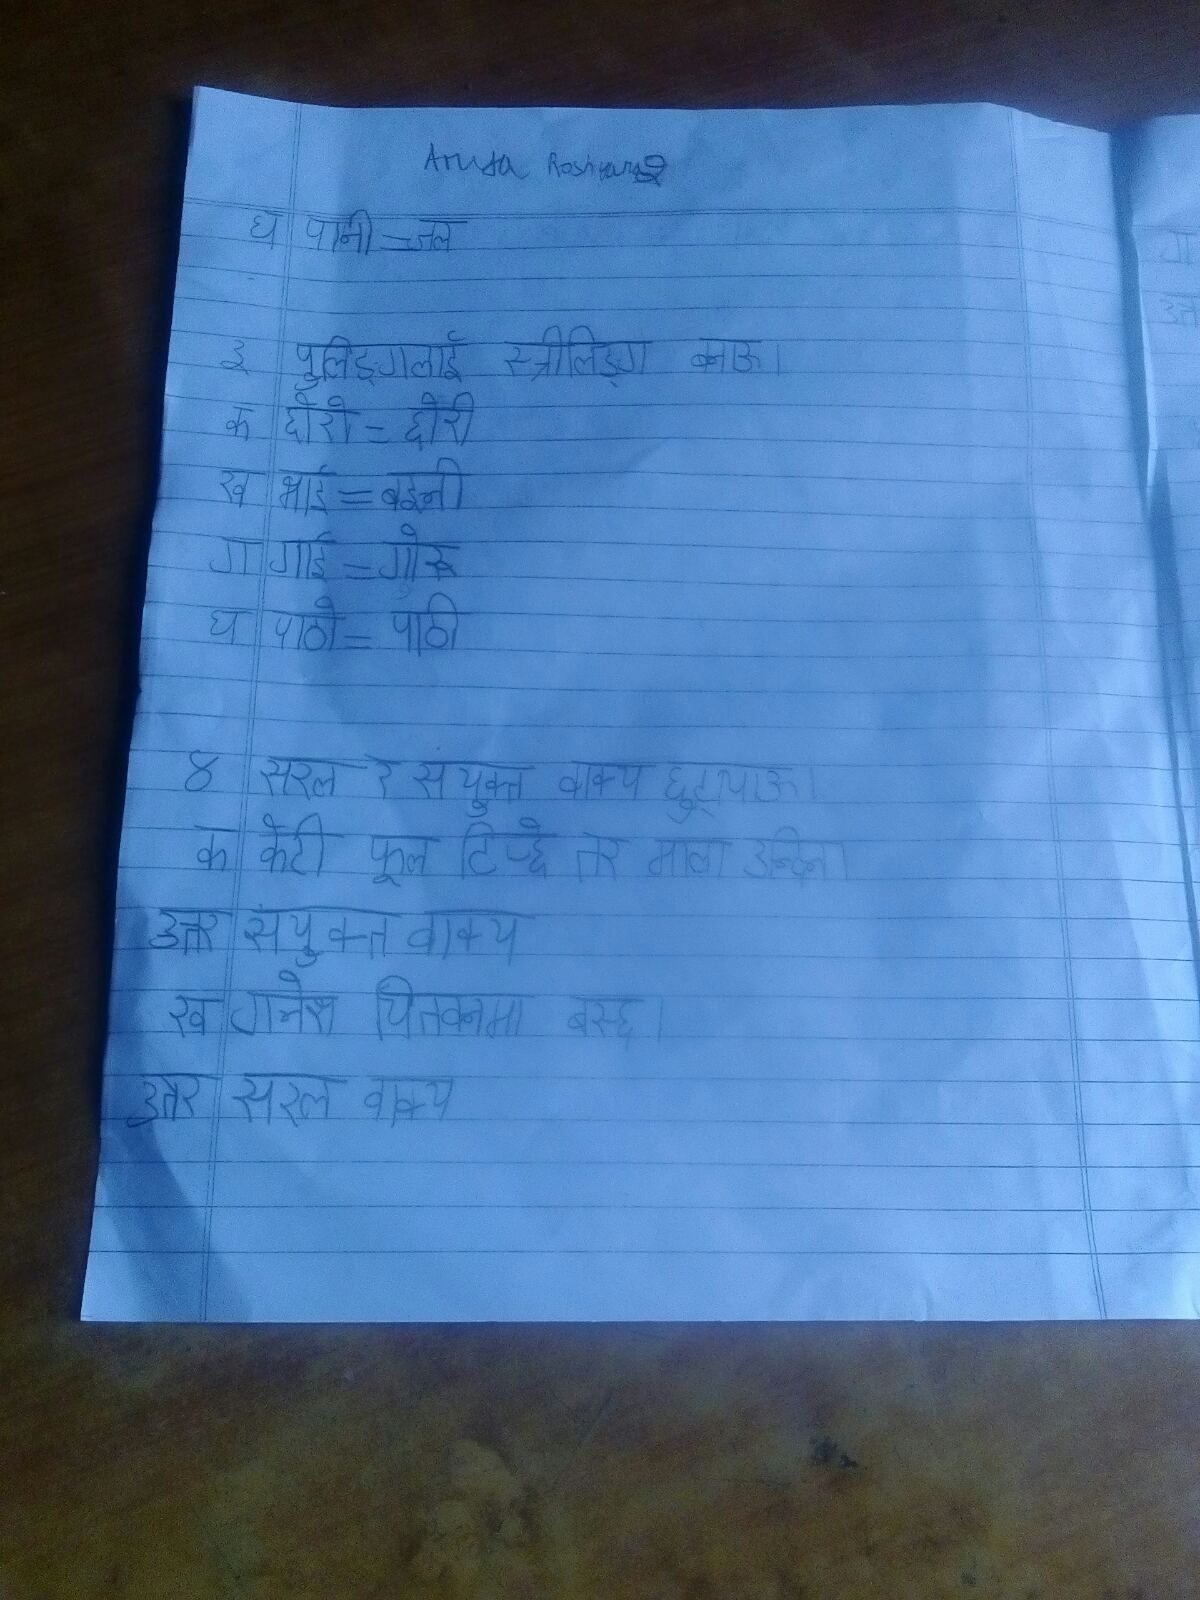 घ पानी = जल
३ पुलिङ्गलाई स्त्रीलिङ्ग बनाऊ।
क छोरो = छोरी
ख भाई = बइनी
ग गाई = गोरू
घ पाठो = पाठी
४ सरल र सयुक्त वाक्य छुट्यााऊ।
क केटी फूल टिप्छे तर माला उन्दिन।
उत्तर संयुक्त वाक्य
ख गनेश चितवनमा बस्छ।
उत्तर सरल वाक्य